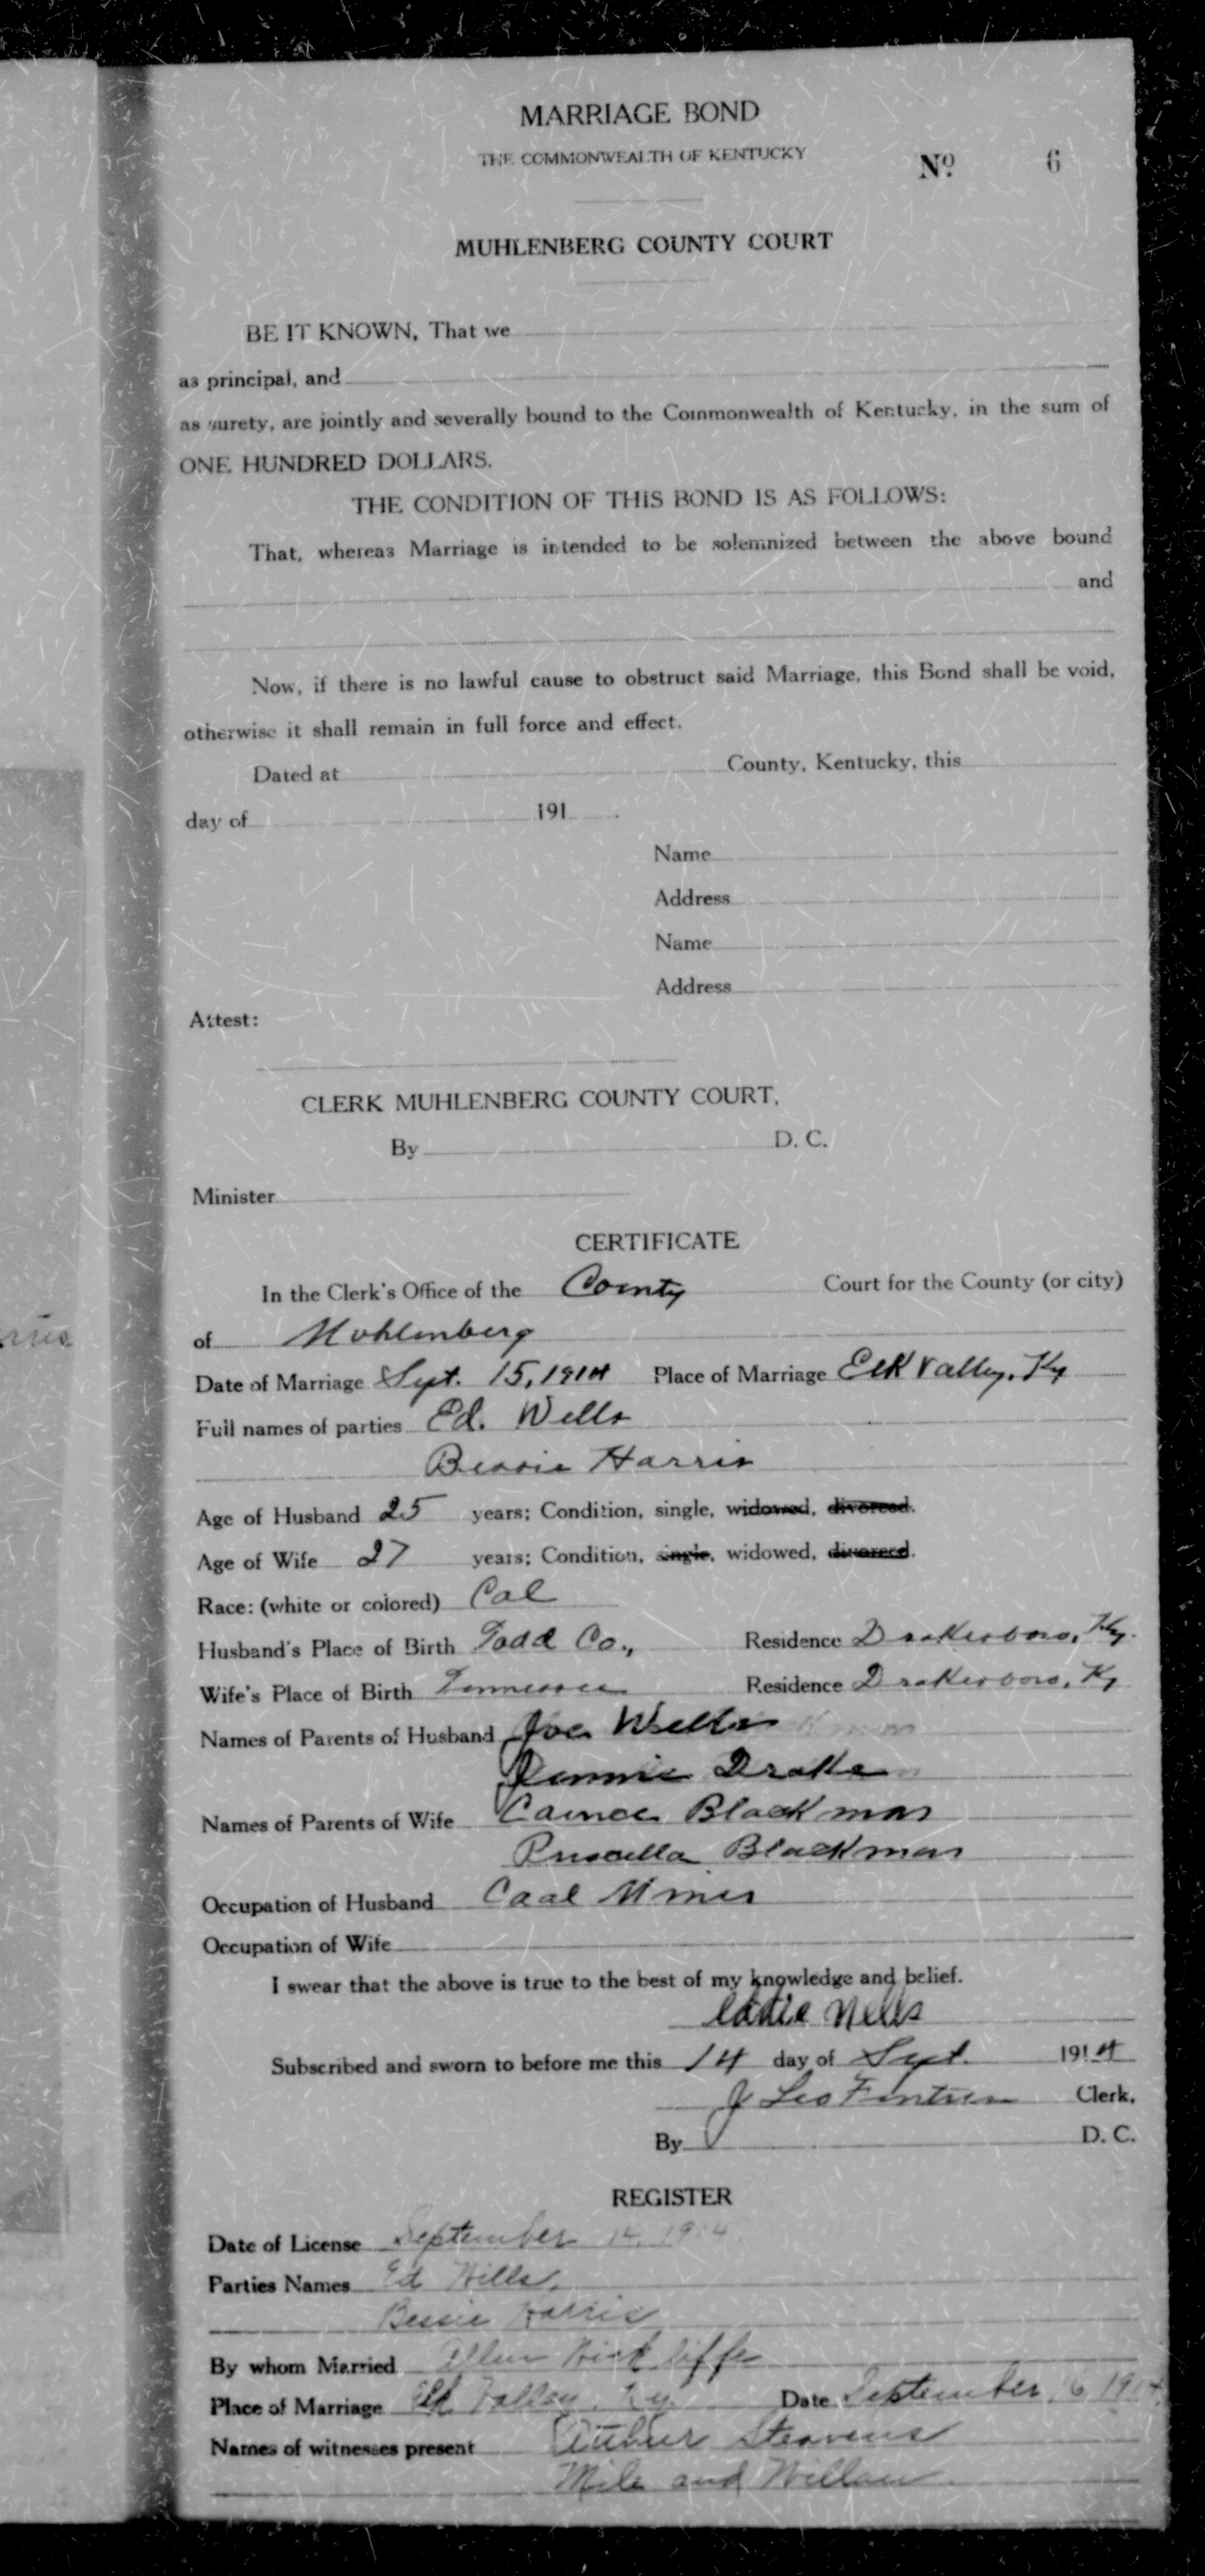 MARRIAGE BOND
THE COMMONWEALTH OF KENTUCKY
No. 6
MUHLENBERG COUNTY COURT
BE IT KNOWN, That we
as principal, and
as surety, are jointly and severally bound to the Commonwealth of Kentucky, in the sum of
ONE HUNDRED DOLLARS.
THE CONDITION OF THIS BOND IS AS FOLLOWS:
That, whereas Marriage is intended to be solemnized between the above bound
and
Now, if there is no lawful cause to obstruct said Marriage, this Bond shall be void,
otherwise it shall remain in full force and effect.
Dated at County, Kentucky, this
day of 191 .
Name
Address
Name
Address
Attest:
CLERK MUHLENBERG COUNTY COURT,
By D. C.
Minister
CERTIFICATE
In the Clerk's Office of the County Court for the County (or city)
of Muhlenberg
Date of Marriage Sept. 15, 1914 Place of Marriage Elk Valley, Ky
Full names of parties Ed. Wells
Bessie Harris
Age of Husband 25 years; Condition, single, widowed, divorced.
Age of Wife 27 years; Condition, single, widowed, divorced.
Race: (white or colored) Col
Husband's Place of Birth Todd Co., Residence Drakesboro, Ky.
Wife's Place of Birth Tennessee Residence Drakesboro, Ky
Names of Parents of Husband Joe Wells
Jennie Drake
Names of Parents of Wife Blackman
Priscilla Blackman
Occupation of Husband Coal Miner
Occupation of Wife
I swear that the above is true to the best of my knowledge and belief.
Eddie Wells
Subscribed and sworn to before me this 14 day of Sept. 1914
J Leo Fentress Clerk,
By D. C.
REGISTER
Date of License September 14, 1914
Parties Names Ed Wells,
Bessie Harris
By whom Married Allen
Place of Marriage Elk Valley, Ky. Date September 1914
Names of witnesses present Arthur Steavens
and